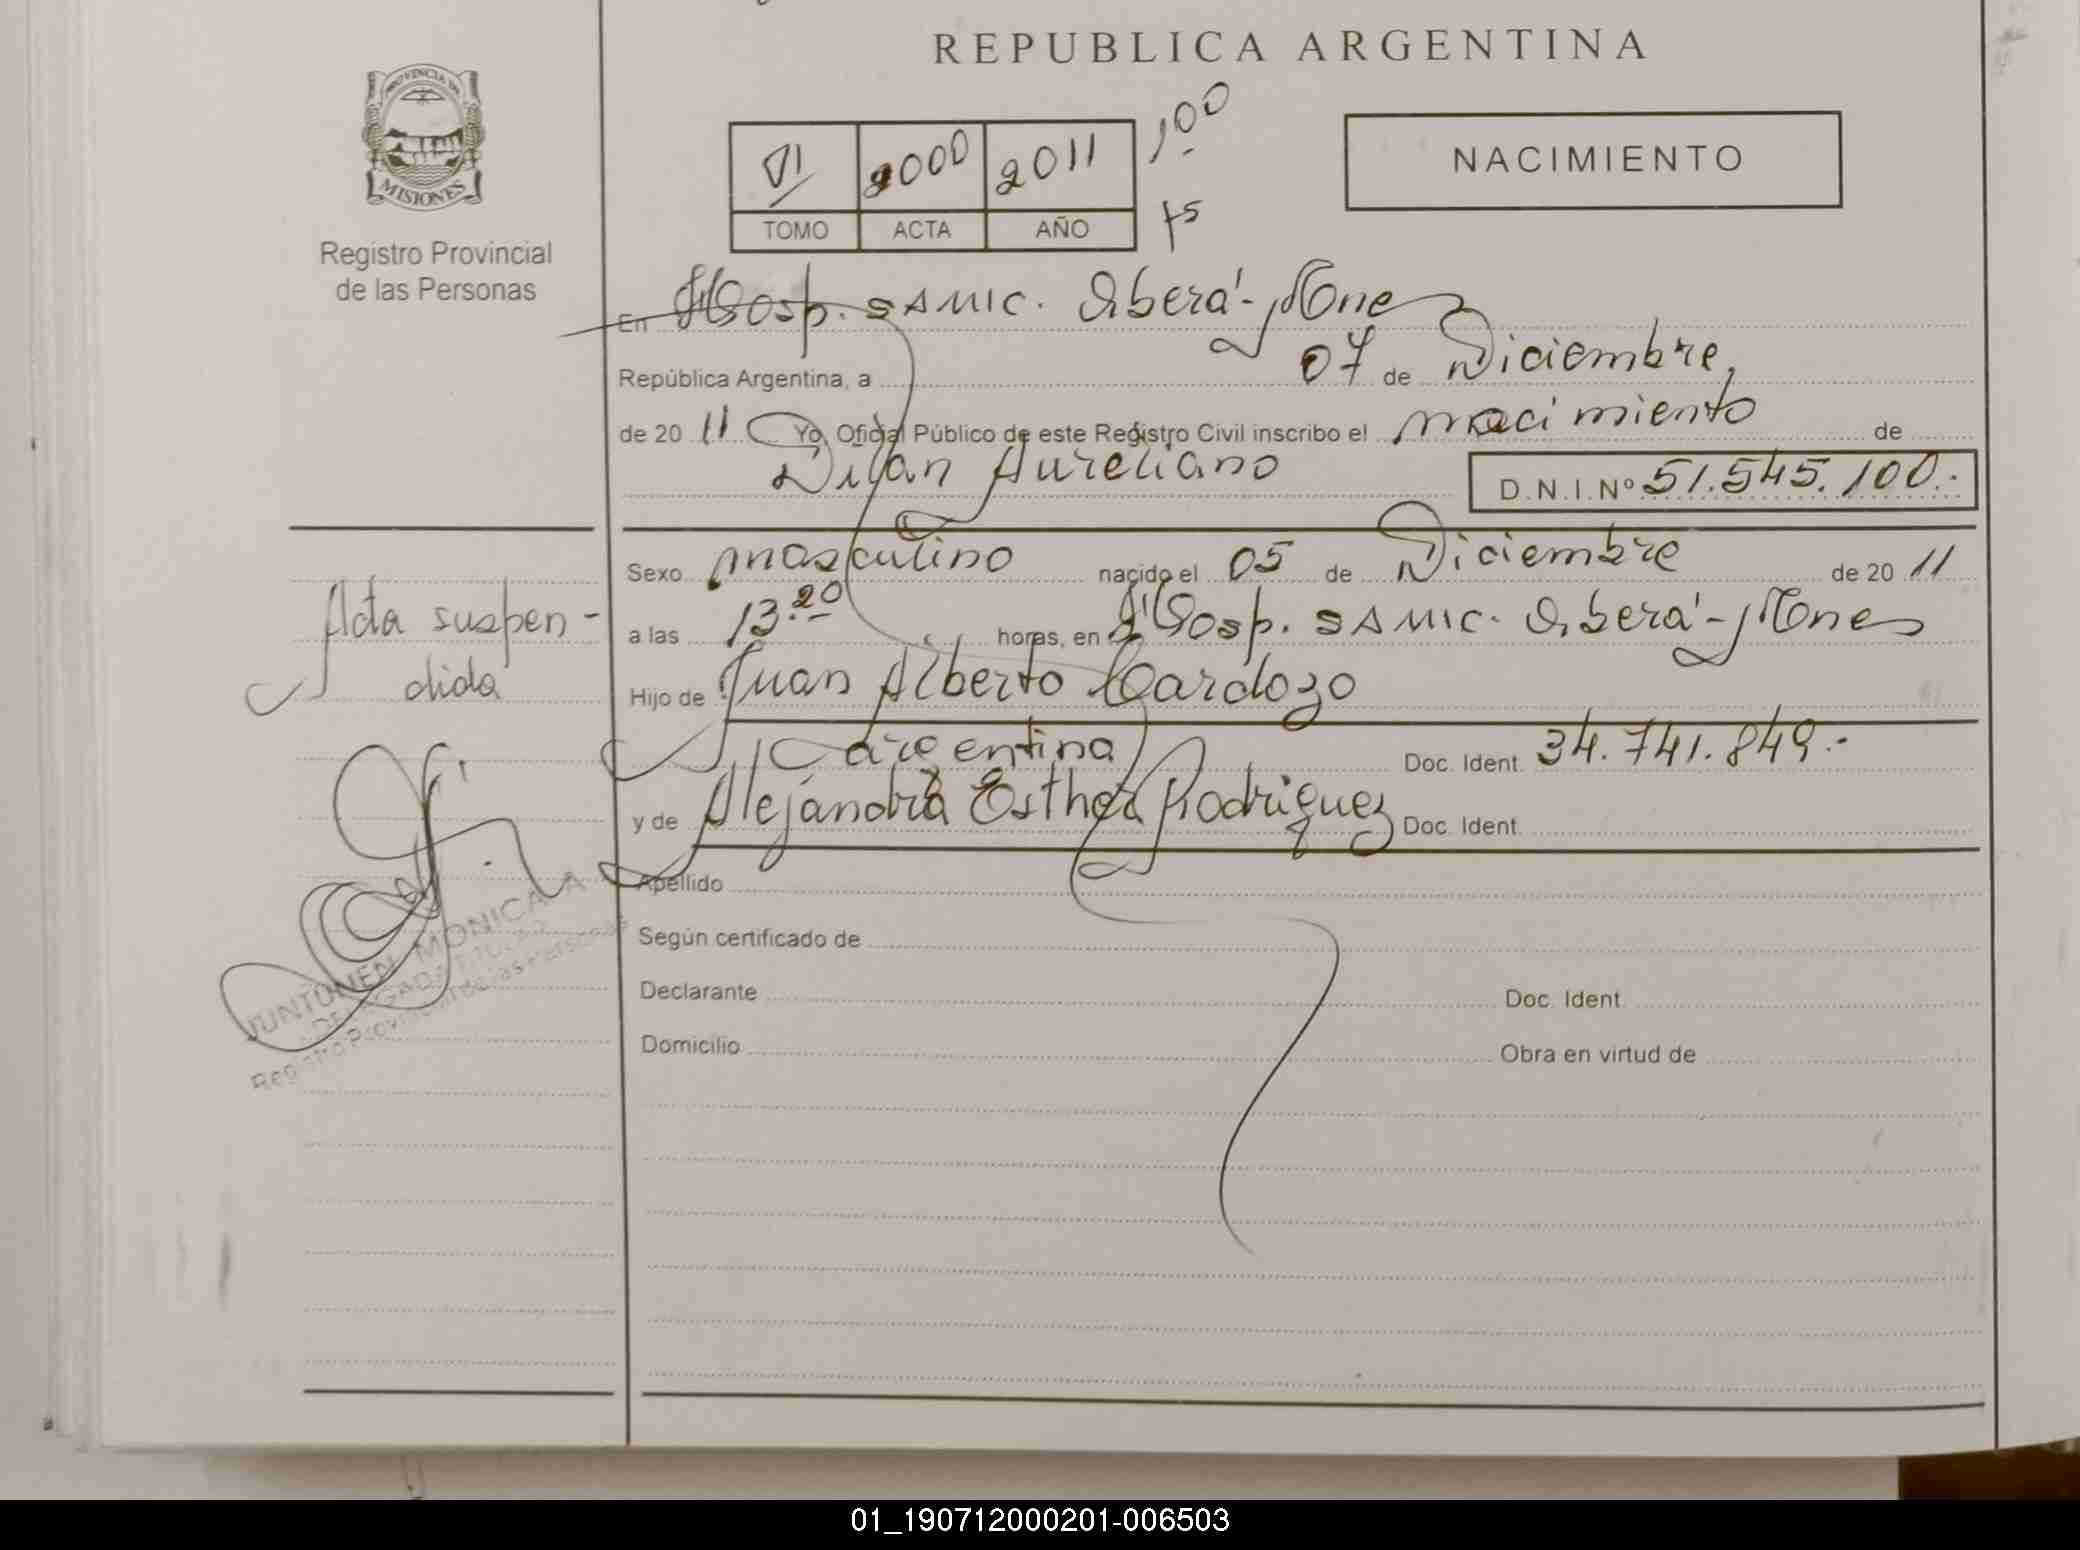 REPUBLICA ARGENTINA
PROVINCIA DE
MISIONES
Registro Provincial
de las Personas
VI 2000 2011 100
TOMO ACTA AÑO 75
NACIMIENTO
En Hosp. SAMIC. Oberá - Mnes
República Argentina, a 07 de Diciembre,
de 20 11 Yo, Oficial Público de este Registro Civil inscribo el nacimiento de
Dilan Aureliano D.N.I.Nº 51.545.100.-
Sexo masculino nacido el 05 de Diciembre de 20 11
a las 13.20 horas, en Hosp. SAMIC. Oberá - Mnes
Hijo de Juan Alberto Cardozo
argentina Doc. Ident. 34.741.849.-
y de Alejandra Esther Rodriguez Doc. Ident.
Apellido
Según certificado de
Declarante Doc. Ident.
Domicilio Obra en virtud de
Acta suspen-
dida
JUNTUNEN MONICA A
DELEGADA TITULAR
Registro Provincial de las Personas
01_190712000201-006503